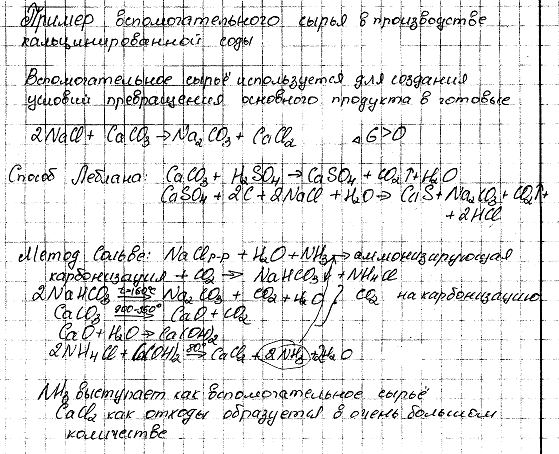 Пример вспомогательного сырья в производстве
кальцинированной соды
Вспомогательное сырьё используется для создания
условий превращения основного продукта в готовые
2NaCl + CaCO3 → Na2CO3 + CaCl2 ΔG>0
Способ Леблана: CaCO3 + H2SO4 → CaSO4 + CO2↑ + H2O
CaSO4 + 2C + 2NaCl + H2O → CaS + Na2CO3 + CO2↑ +
+ 2HCl
Метод Сольве: NaCl р-р + H2O + NH3 → аммонизирующая
карбонизация + CO2 → NaHCO3↓ + NH4Cl
2NaHCO3 t=160°C Na2CO3 + CO2 + H2O } CO2 на карбонизацию
CaCO3 → CaO + CO2
CaO + H2O → Ca(OH)2
2NH4Cl + Ca(OH)2 → CaCl2 + 2NH3 + 2H2O
NH3 выступает как вспомогательное сырьё
CaCl2 как отходы образуется в очень большом
количестве